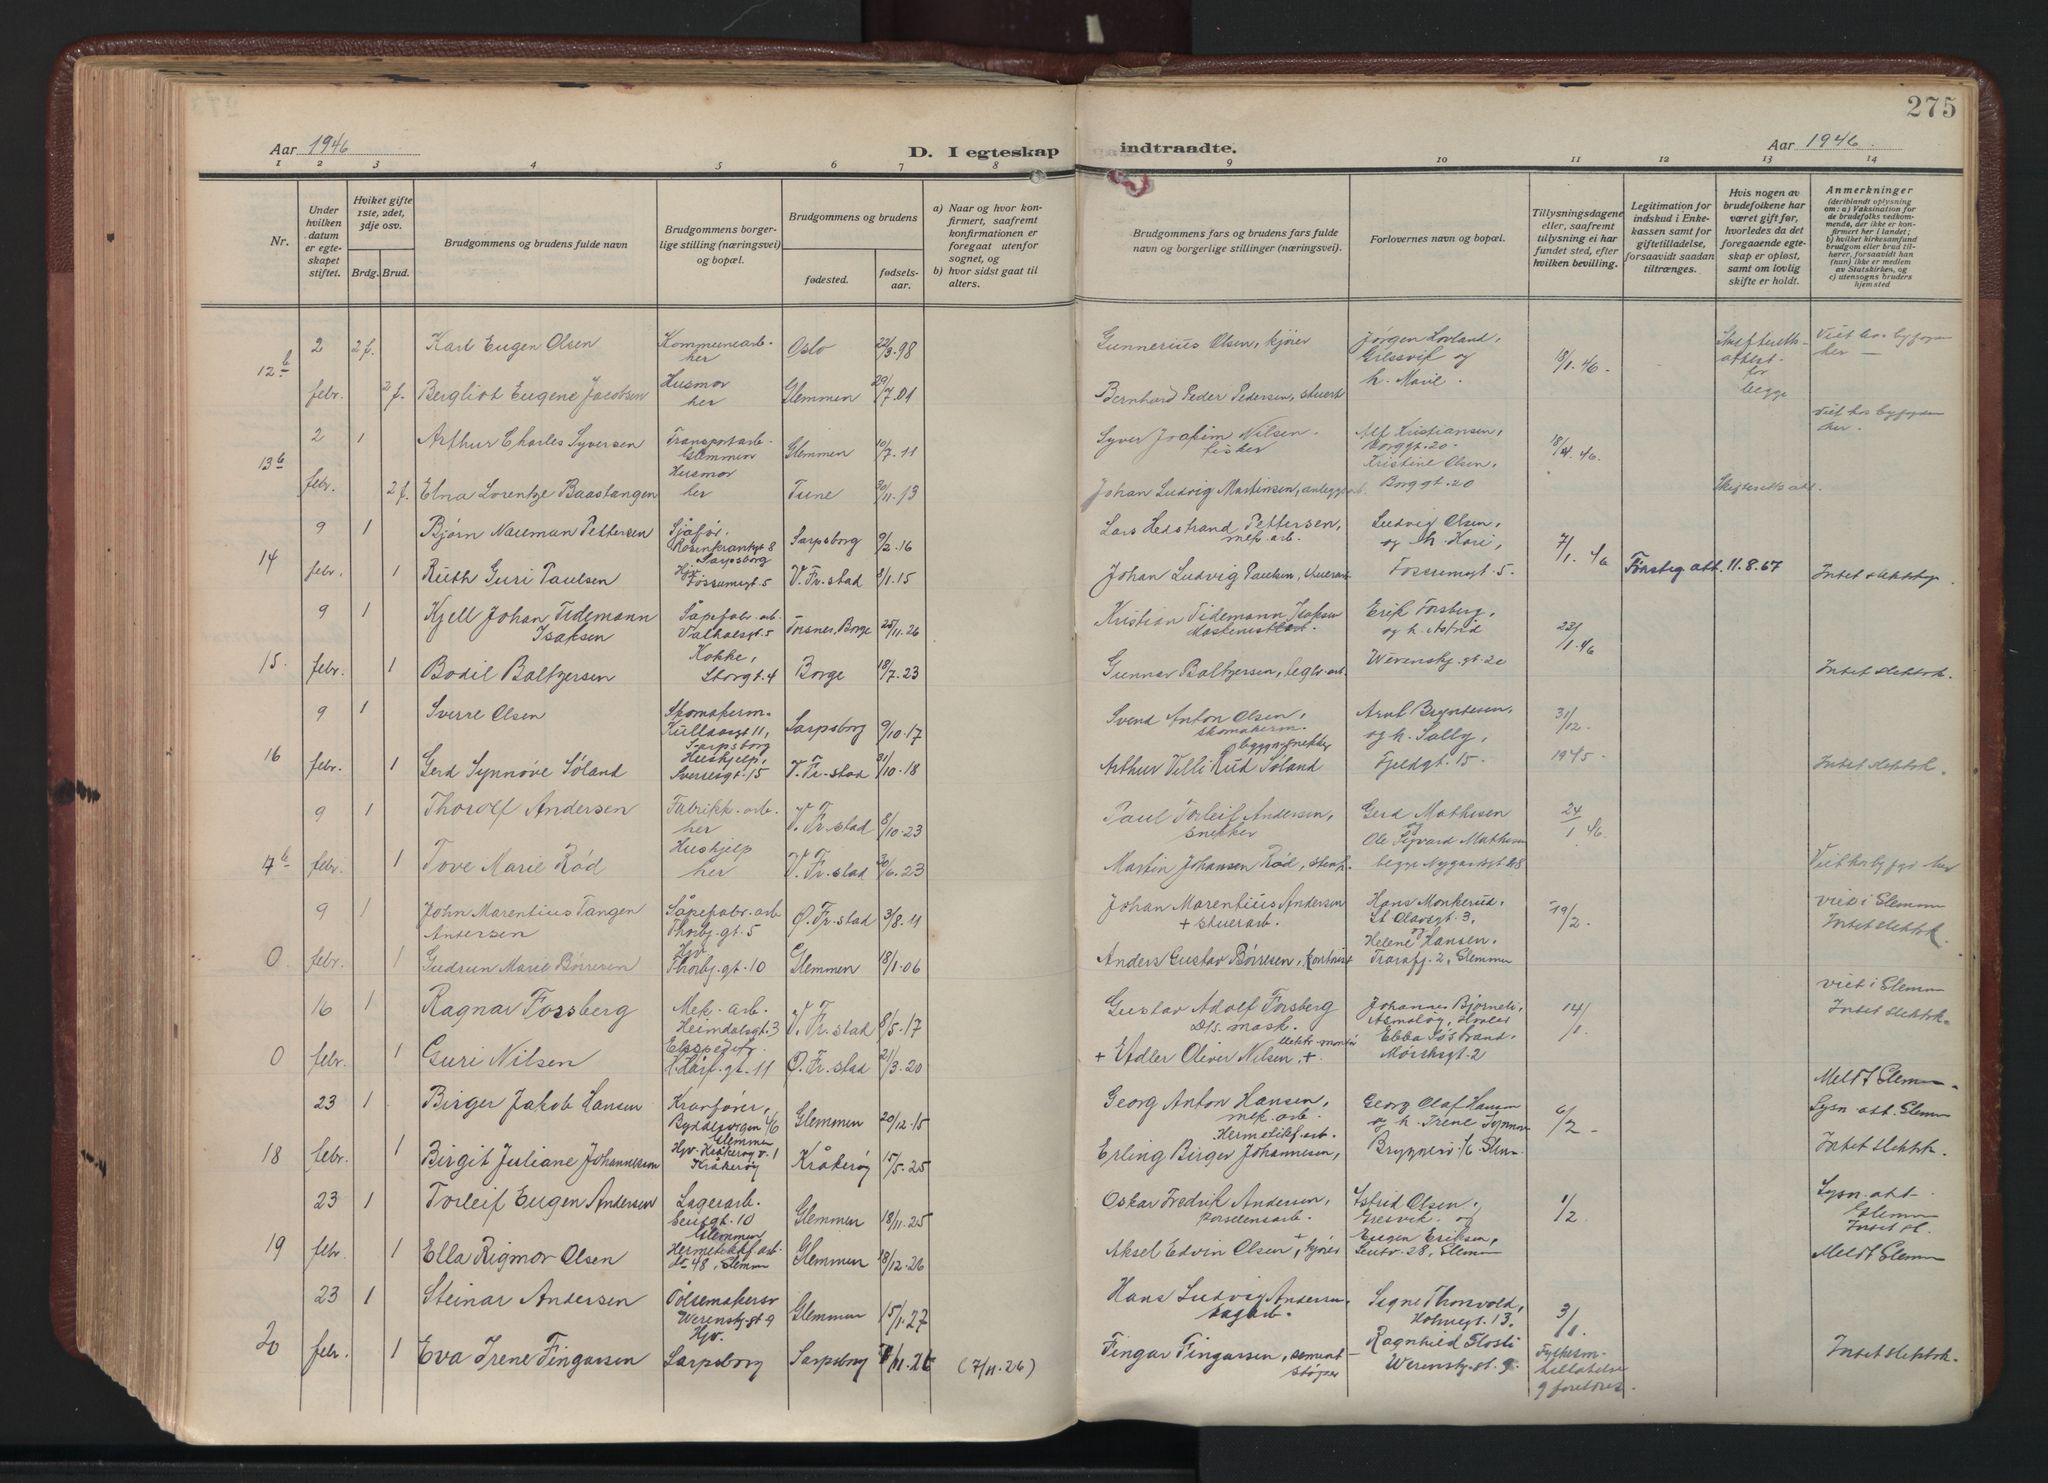 275
Aar 1946
D. I egteskap
indtraadte.
Aar 1946
1 2 3 4 5 6 7 8 9 10 11 12 13 14
Nr.
Under hvilken datum er egteskapet stiftet.
Hviket gifte 1ste, 2det, 3dje osv.
Brdg. Brud.
Brudgommens og brudens fulde navn
Brudgommens borgerlige stilling (næringsvei) og bopæl.
Brudgommens og brudens
fødested.
fødselsaar.
a) Naar og hvor konfirmert, saafremt konfirmationen er foregaat utenfor sognet, og
b) hvor sidst gaat til alters.
Brudgommens fars og brudens fars fulde navn og borgerlige stillinger (næringsvei).
Forlovernes navn og bopæl.
Tillysningsdagene eller, saafremt tillysning ei har fundet sted, efter hvilken bevilling.
Legitimation for indskud i Enkekassen samt for giftetilladelse, forsaavidt saadan tiltrænges.
Hvis nogen av brudefolkene har været gift før, hvorledes da det foregaaende egteskap er opløst, samt om lovlig skifte er holdt.
Anmerkninger (deriblandt oplysning om: a) Vaksination for de brudefolks vedkommende, der ikke er konfirmert her i landet; b) hvilket kirkesamfund brudgom eller brud tilhører, forsaavidt han (hun) ikke er medlem av Statskirken, og c) utensogns bruders hjemsted
12 b 2 2 f. Karl Eugen Olsen Kommunearb. her Oslo 22/3.98 Gunnerius Olsen, kjører Jørgen Lovland, Gressvik og h. Marie. 18/1.46. Skifteretts-attest for begge Viet hos byfogden her —
febr. 2 f. Bergliot Eugene Jacobsen Husmor her Glemmen 29/7.01 Bernhard Peder Pedersen, stuert
13 b 2 1 Arthur Charles Syversen Transportarb. Glemmen Glemmen 10/7.11 Syver Joakim Nilsen. fisker Alf Kristiansen, Borggt. 20. Viet hos byfogden her.
febr. 2 f. Elna Lorentze Baastangen Husmor her Tune 30/11.13 Johan Ludvig Martinsen, anleggsarb. Kristine Olsen, Borggt. 20 Skifteretts att.
14 9 1 Bjørn Nauman Pettersen Sjåfør. Rosenkrantzgt 8 Sarpsborg Sarpsborg 9/2.16 Lars Hedstrand Pettersen, mek. arb. Ludvig Olsen, og h. Kari, 7/1.46 Fønstig att. 11.8.67
febr. 1 Ruth Guri Paulsen Hjv. Fossumsgt. 5 V. Fr.stad 8/1.15 Johan Ludvig Paulsen, stuerarb Fossumsgt. 5. Intet slektsk.
15. 9 1 Kjell Johan Tidemann Isaksen Såpefabr. arb. Valhalsgt. 5 Torsnes, Borge 25/11.26 Kristian Tidemann Isaksen Maskinist Erik Forsberg, og h. Astrid 22/1.46
febr. 1 Bodil Baltzersen Kokke, Storgt. 4 Borge 18/7.23 Gunnar Baltzersen, teglv. arb. Werenskj. gt. 20 Intet slektsk.
16 9 1 Sverre Olsen Skomakerm. Kullaasgt 11, Sarpsborg Sarpsborg 9/10.17 Svend Anton Olsen, skomakerm. og h. Sally, 31/12 1945.
febr. 1 Gerd Synnøve Søland Hushjelp, Sverresgt. 15 V. Fr.stad 31/10.18 Arthur Villi Rud Søland byggn. snekker Fjeldgt. 15. Intet slektsk.
17 b 9 1 Thorolf Andersen Fabrikk. arb. her V. Fr.stad 8/10.23 Paul Torleif Andersen, snekker Gerd Mathisen og Ole Sigvard Mathisen 24/1 46.
febr. 1 Tove Marie Rød Hushjelp her V. Fr.stad 30/6.23 Martin Johansen Rød, begge Nygaardsgt
0 9 1 John Marentius Tangen Andersen Såpefabr. arb Thorbj. gt. 5 Ø. Fr.stad 3/8.11 Johan Marentius Andersen + stuerarb. Hans Monkerud, St. Olavsgt. 3, og 19/2. viet i Glemm Intet slektsk.
febr. 1 Gudrun Marie Børresen Hjv. Thorbj. gt. 10 Glemmen 18/1.06 Anders Gustav Børresen, kontorist Helene Hansen. Trarafj. 2, Glemm
0 16 1 Ragnar Forsberg Mek. arb. Heimdalsgt. 3 V. Fr.stad 8/5.17 Gustav Adolf Forsberg D/S. mask. Johannes Bjørneli, Asmaløy, Hvaler 14/1 viet i Glemm Intet slektsk.
febr. 1 Guri Nilsen H. Hårf. gt. 11 Ø. Fr.stad 21/3.20 + Edler Oliver Nilsen, + elektr. montør Ebba Søstrand, Mørchsgt. 2
18 23 1 Birger Jakob Hansen Kranfører, Buddalsvigen 46 Glemmen Glemmen 20/12.15 Georg Anton Hansen, mek. arb. Georg Olaf Hansen og h. Irene Synnøv 6/2 — Meldt Glemm. Lysn. att. Glemm
febr. 1 Birgit Juliane Johannessen Hjv. Kråkerøy v. 1 Kråkerøy Kråkerøy 15/5.25 Erling Birger Johannesen, Hermetikf. arb. Intet slektsk.
19 23 1 Torleif Eugen Andersen Lagerarb. Seutsgt. 10 Glemmen Glemmen 18/11.25 Oskar Fredrik Andersen, Porselensarb. Astrid Olsen, Gresvik. og 1/2 Lysn. att. Glemm Intet sl.
febr. 1 Ella Rigmor Olsen Hermetikkf arb. 48, Glemm Glemmen 18/12.26 Aksel Edvin Olsen +, kjører Eugen Eriksen, Seutsv. 28, Glemm Meldt Glemm
20 23 1 Steinar Andersen Pølsemakersv Werenskj. gt 9 Glemmen 15/1.27 Hans Ludvig Andersen, sagarb. Signe Thorvold, Holmegt. 13. 3/1.
febr. 1 Eva Irene Fingarsen Hjv. Sarpsborg Sarpsborg 7/11.26 (7/11.26) Fingar Fingarsen, sement støper Ragnhild Flosti Werenskj. gt. 9. Fylkesm. tillatelse Intet slektsk.